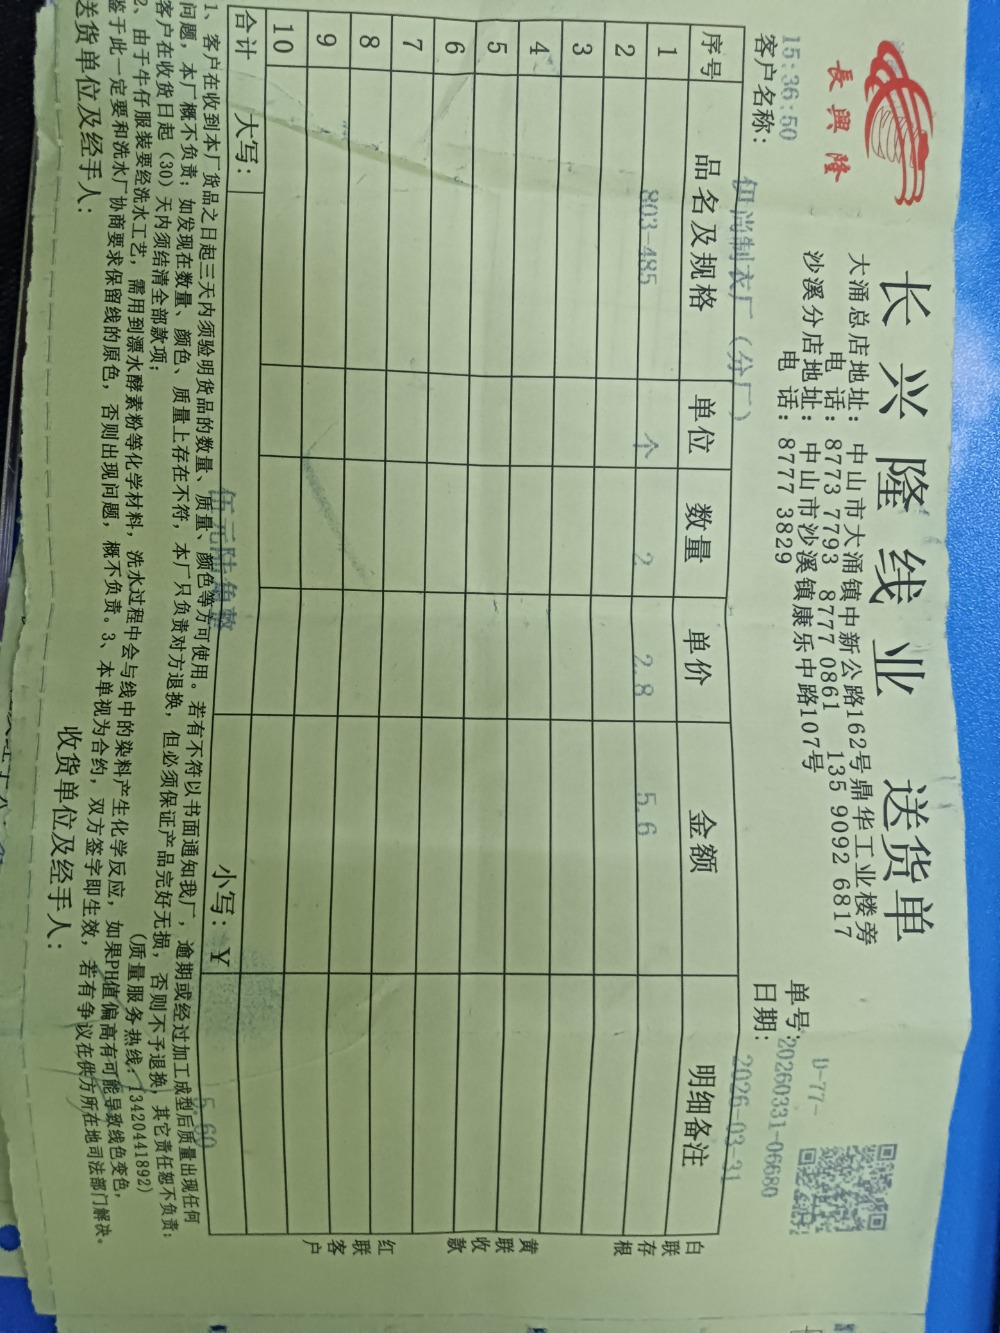 長興隆
长兴隆线业 送货单
大涌总店地址：中山市大涌镇中新公路162号鼎华工业楼旁
电 话：8773 7793 8777 0861 135 9092 6817
沙溪分店地址：中山市沙溪镇康乐中路107号
电 话：8777 3829
D-77-
单号:20260331-06680
15:36:50
日期:2026-03-31
客户名称：伊尚制衣厂（分厂）
序号 品名及规格 单位 数量 单价 金额 明细备注
1 803-485 个 2 2.8 5.6
2
3
4
5
6
7
8
9
10
合计 大写：伍元陆角整 小写：¥ 5.60
白联存根
黄联收款
红联客户
1、客户在收到本厂货品之日起三天内须验明货品的数量、质量、颜色等方可使用。若有不符以书面通知我厂，逾期或经过加工成型后质量出现任何
问题，本厂概不负责；如发现在数量、颜色、质量上存在不符，本厂只负责对方退换，但必须保证产品完好无损，否则不予退换，其它责任恕不负责；
客户在收货日起（30）天内须结清全部款项；
（质量服务热线：13420441892）
2、由于牛仔服装要经洗水工艺，需用到漂水酵素粉等化学材料，洗水过程中会与线中的染料产生化学反应，如果PH值偏高有可能导致线色变色，
鉴于此一定要和洗水厂协商要求保留线的原色，否则出现问题，概不负责。3、本单视为合约，双方签字即生效，若有争议在供方所在地司法部门解决。
送货单位及经手人： 收货单位及经手人：